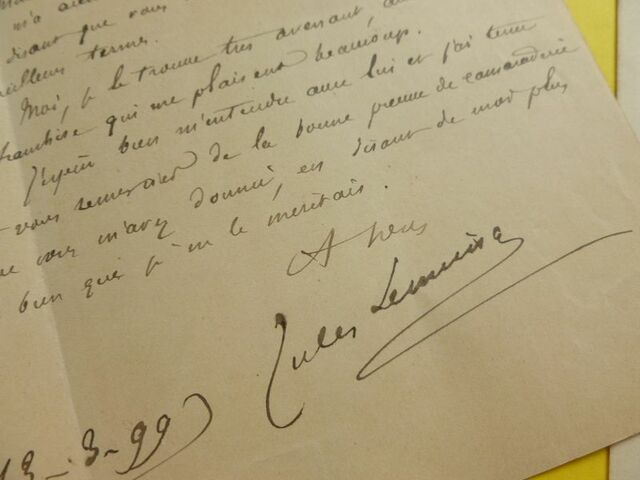 m'a
disant que vous
meilleurs termes.
Moi, je le trouve très avenant,
franchise qui me plaisent beaucoup.
J'espère bien m'entendre avec lui et j'ai tenu
vous remercier de la bonne preuve de camaraderie
que vous m'avez donnée, en disant de moi plus
bien que je n'en le méritais.
A vous
Jules Lermina
13-3-99